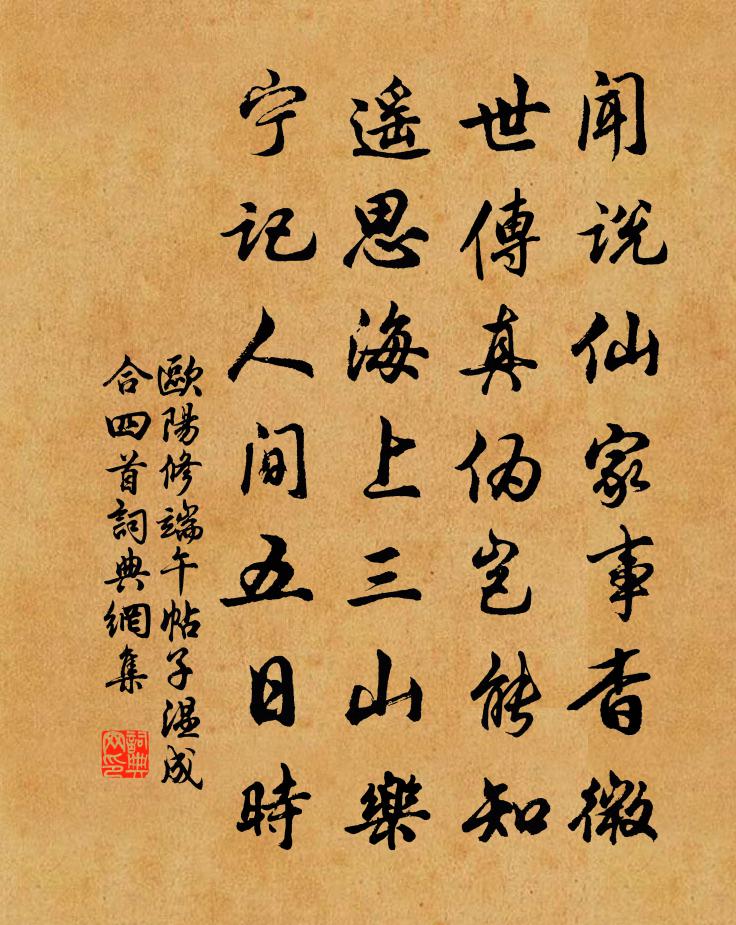 闻说仙家事杳微
世傳真伪岂能知
遥思海上三山樂
宁记人间五日時
歐陽修端午帖子温成
合四首詞典網集
詞典网印